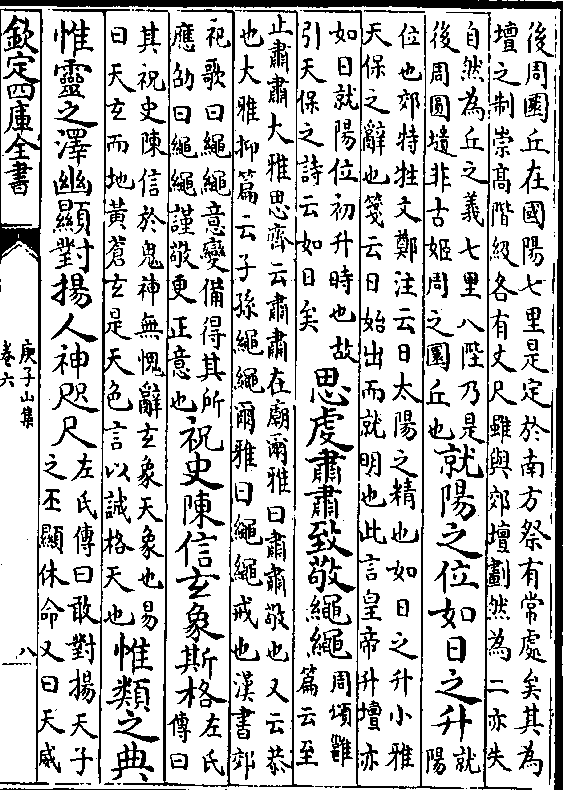 後周圜丘在國陽七里是定於南方祭有常處矣其為
壇之制崇髙階級各有丈尺雖與郊壇劃然為二亦失
自然為丘之義七里八陛乃是
後周圓壝非古姬周之圜丘也
就陽之位如日之升
就
陽
位也郊特牲文鄭注云日太陽之精也如日之升小雅
天保之辭也箋云日始出而就明也此言皇帝升壇亦
如日就陽位初升時也故
引天保之詩云如日矣
思虔肅肅致敬繩繩
周頌雝
篇云至
止肅肅大雅思齊云肅肅在廟爾雅曰肅肅敬也又云恭
也大雅抑篇云子孫繩繩爾雅曰繩繩戒也漢書郊
祀歌曰繩繩意變備得其所
應劭曰繩繩謹敬更正意也
祝史陳信玄象斯格
左氏
傳曰
其祝史陳信於鬼神無愧辭玄象天象也易
曰天玄而地黃蒼玄是天色言以誠格天也
惟類之典
惟靈之澤幽顯對揚人神咫尺
左氏傳曰敢對揚天子
之丕顯休命又曰天威
欽定四庫全書
庾子山集
卷六
八